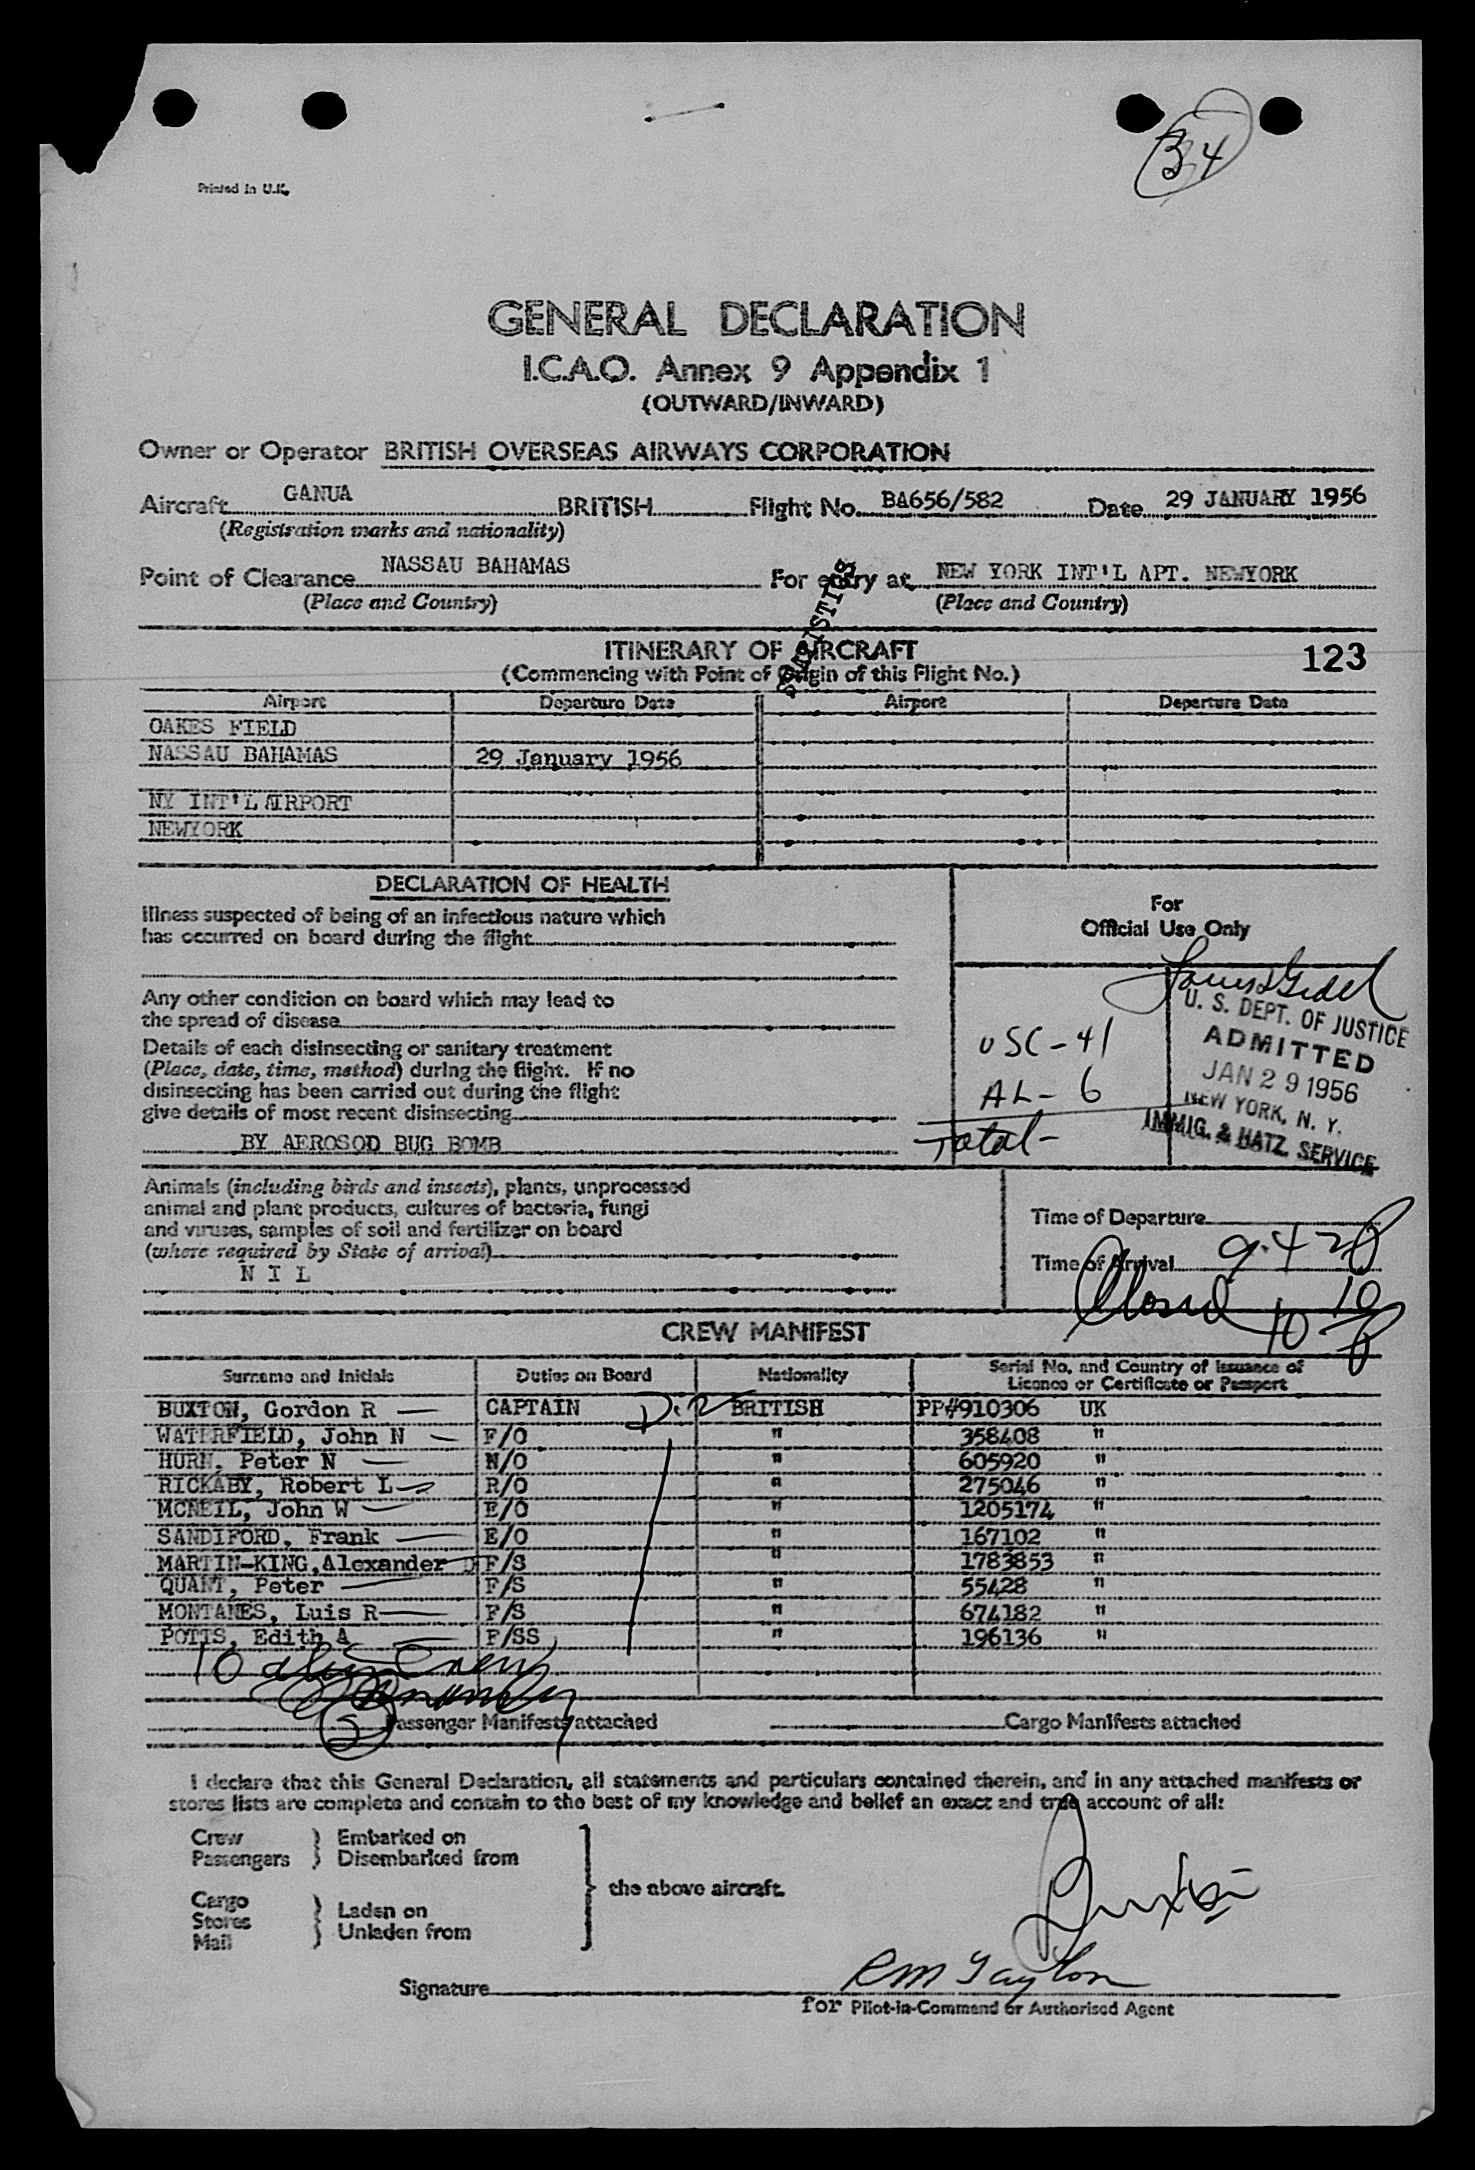 34
Printed in U.K.
GENERAL DECLARATION
I.C.A.O. Annex 9 Appendix 1
(OUTWARD/INWARD)
Owner or Operator BRITISH OVERSEAS AIRWAYS CORPORATION
Aircraft GANUA BRITISH Flight No. BA656/582 Date 29 JANUARY 1956
(Registration marks and nationality)
Point of Clearance NASSAU BAHAMAS For entry at NEW YORK INT'L APT. NEWYORK
(Place and Country) (Place and Country)
STATISTICS
ITINERARY OF AIRCRAFT 123
(Commencing with Point of Origin of this Flight No.)
Airport Departure Date Airport Departure Date
OAKES FIELD
NASSAU BAHAMAS 29 January 1956
NY INT'L AIRPORT
NEWYORK
DECLARATION OF HEALTH
Illness suspected of being of an infectious nature which
has occurred on board during the flight
For
Official Use Only
Any other condition on board which may lead to
the spread of disease
Details of each disinsecting or sanitary treatment
(Place, date, time, method) during the flight. If no
disinsecting has been carried out during the flight
give details of most recent disinsecting
BY AEROSOD BUG BOMB
USC-41
AL-6
Total-
U. S. DEPT. OF JUSTICE
ADMITTED
JAN 29 1956
NEW YORK, N. Y.
IMMIG. & NATZ. SERVICE
Animals (including birds and insects), plants, unprocessed
animal and plant products, cultures of bacteria, fungi
and viruses, samples of soil and fertilizer on board
(where required by State of arrival)
N I L
Time of Departure
Time of Arrival 9.42p
Closed 10 10 p
CREW MANIFEST
Surname and Initials Duties on Board Nationality Serial No. and Country of Issuance of
Licence or Certificate or Passport
BUXTON, Gordon R CAPTAIN BRITISH PP#910306 UK
WATERFIELD, John N F/O " 358408 "
HURN, Peter N N/O " 605920 "
RICKABY, Robert L R/O " 275046 "
MCNEIL, John W E/O " 1205174 "
SANDIFORD, Frank E/O " 167102 "
MARTIN-KING, Alexander D F/S " 1783853 "
QUANT, Peter F/S " 55428 "
MONTANES, Luis R F/S " 674182 "
POTTS, Edith A F/SS " 196136 "
10 alien Crew
5 Passenger Manifests attached Cargo Manifests attached
I declare that this General Declaration, all statements and particulars contained therein, and in any attached manifests or
stores lists are complete and contain to the best of my knowledge and belief an exact and true account of all:
Crew } Embarked on
Passengers } Disembarked from
the above aircraft.
Cargo
Stores } Laden on
Mail } Unladen from
Buxton
Signature RM Taylor
for Pilot-in-Command or Authorised Agent